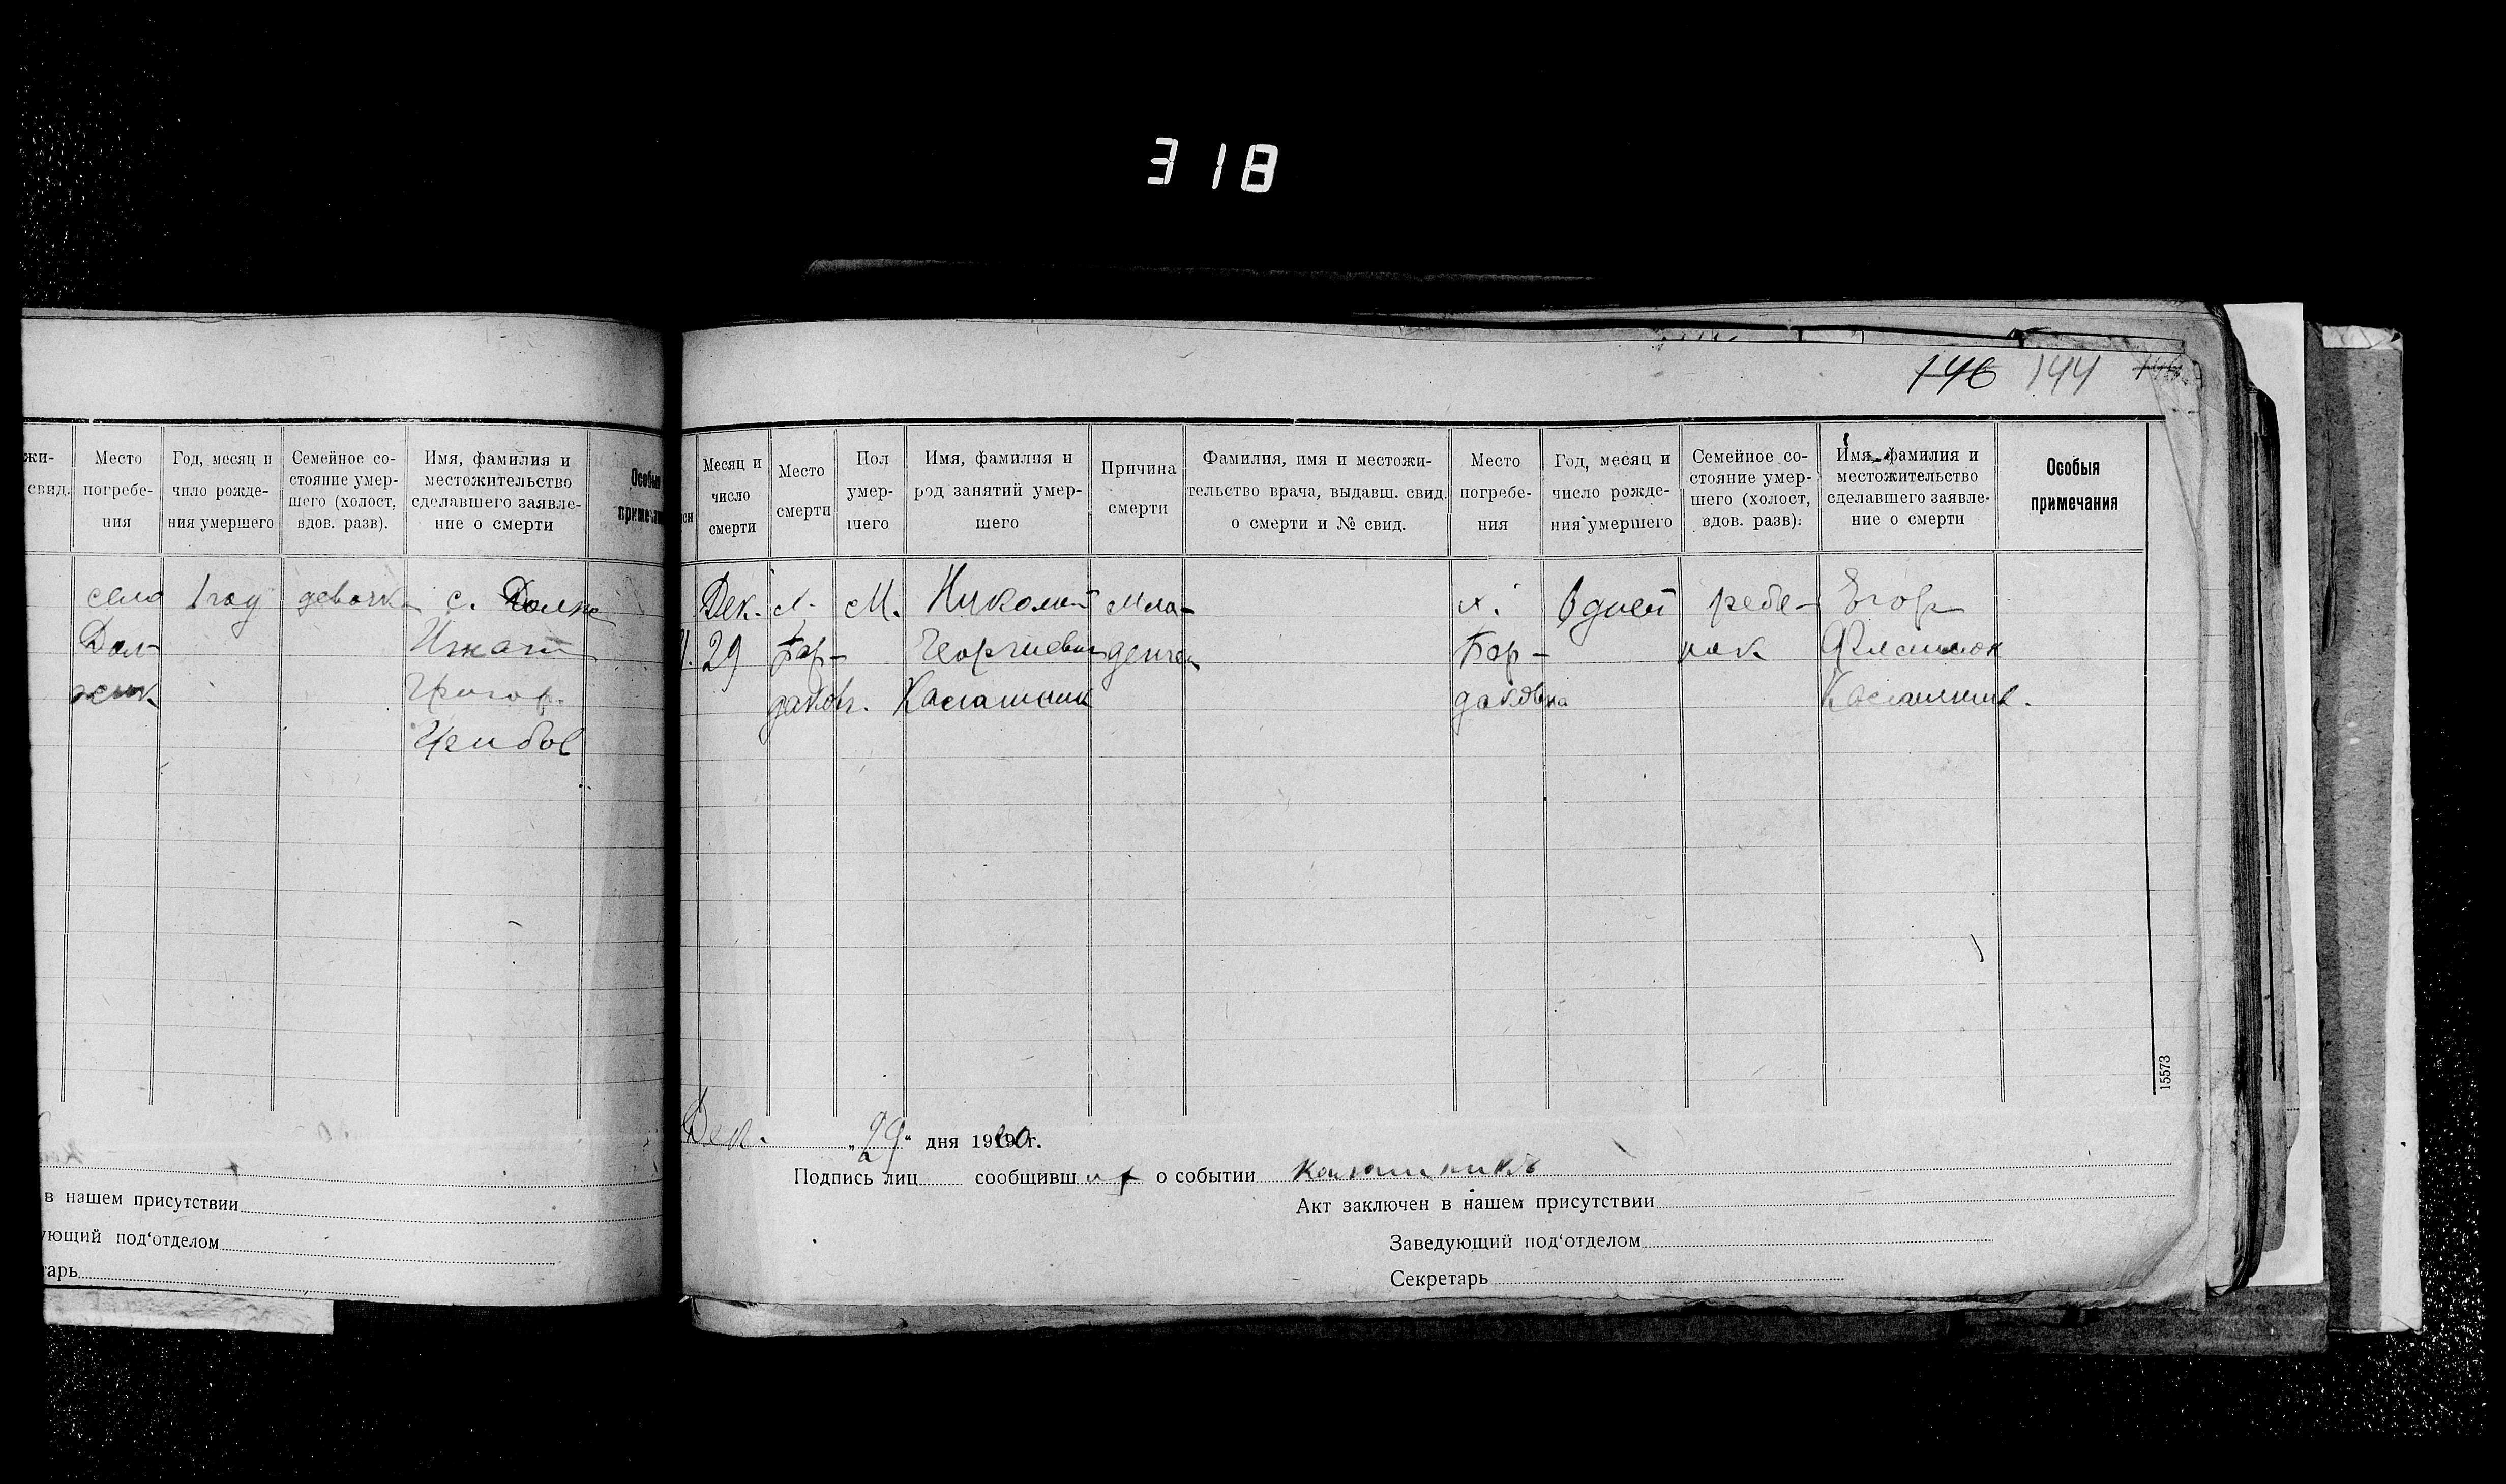 318
146 144
жи-
свид.
Место
погребе-
ния
Год, месяц и
чило рожде-
ния умершего
Семейное со-
стояние умер-
шего (холост,
вдов. разв).
Имя, фамилия и
местожительство
сделавшего заявле-
ние о смерти
Особыя
село
Дол-
жик
1 год
девочка
с. Должик
Игнат
Григор.
в нашем присутствии
ующий под‘отделом
тарь
Месяц и
число
смерти
Место
смерти
Пол
умер-
шего
Имя, фамилия и
род занятий умер-
шего
Причина
смерти
Фамилия, имя и местожи-
тельство врача, выдавш. свид.
о смерти и № свид.
Место
погребе-
ния
Год, месяц и
число рожде-
ния умершего
Семейное со-
стояние умер-
шего (холост,
вдов. разв).
Имя, фамилия и
местожительство
сделавшего заявле-
ние о смерти
Особыя
примечания
Дек.
29
х.
Бор-
даковк.
М.
Николай
Георгиевич
Калашник
Мла-
денчес
х.
Бор-
даковка
6 дней
ребе-
нок
Егор
Калашник.
15573
Дек. „29“ дня 1920 г.
Подпись лиц сообщивших о событии Калашникъ
Акт заключен в нашем присутствии
Заведующий под‘отделом
Секретарь